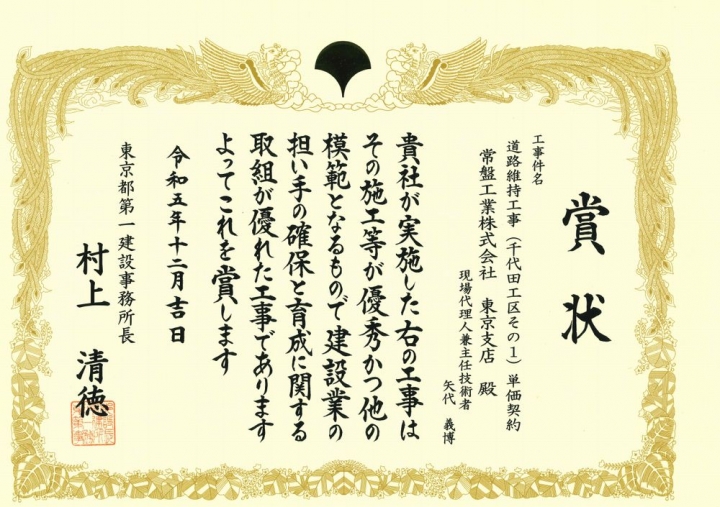 賞状
工事件名
道路維持工事（千代田工区その１）単価契約
常盤工業株式会社　東京支店　殿
現場代理人兼主任技術者
矢代　義博
貴社が実施した右の工事は
その施工等が優秀かつ他の
模範となるもので建設業の
担い手の確保と育成に関する
取組が優れた工事であります
よってこれを賞します
令和五年十二月吉日
東京都第一建設事務所長
村上　清徳